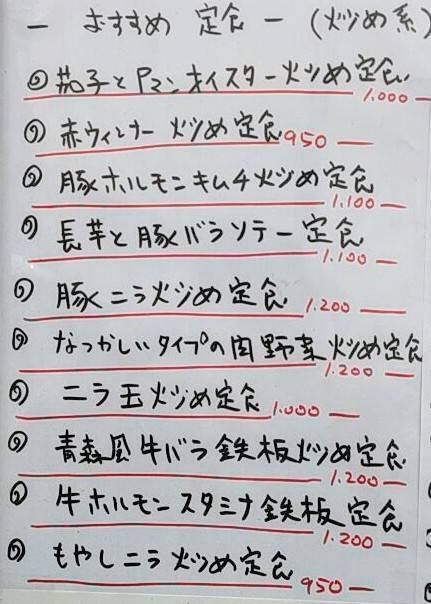 ― おすすめ 定食 ― (炒め系)
◎ 茄子とPマンオイスター炒め定食 1.000 ―
◎ 赤ウィンナー 炒め定食 950 ―
◎ 豚ホルモンキムチ炒め定食 1.100 ―
◎ 長芋と豚バラソテー定食 1.100 ―
◎ 豚ニラ炒め定食 1.200 ―
◎ なつかしいタイプの肉野菜炒め定食 1.200 ―
◎ ニラ玉炒め定食 1.000 ―
◎ 青森風牛バラ鉄板炒め定食 1.200 ―
◎ 牛ホルモンスタミナ鉄板定食 1.200 ―
◎ もやしニラ炒め定食 950 ―